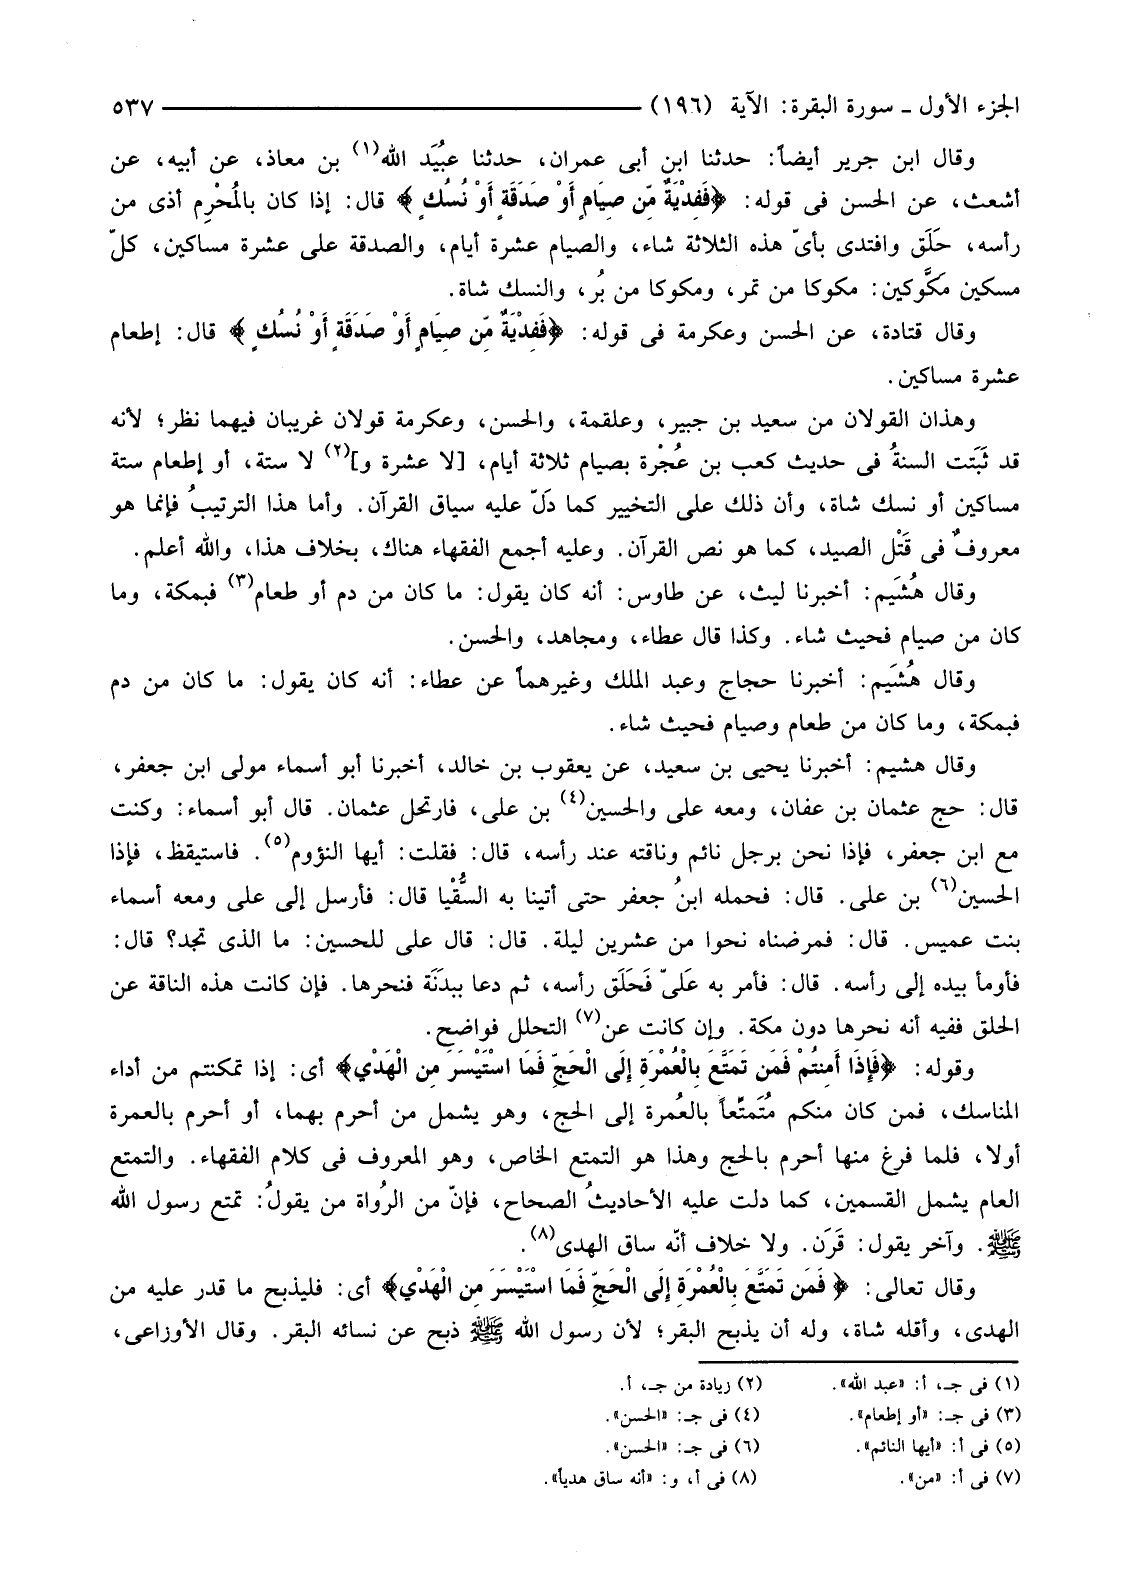 الجزء الأول ـ سورة البقرة: الآية (١٩٦) ٥٣٧
وقال ابن جرير أيضاً: حدثنا ابن أبى عمران، حدثنا عبُيَد الله(١) بن معاذ، عن أبيه، عن
أشعث، عن الحسن فى قوله: ﴿فَفِدْيَةٌ مِّن صِيَامٍ أَوْ صَدَقَةٍ أَوْ نُسُكٍ﴾ قال: إذا كان بالمُحْرِم أذى من
رأسه، حَلَق وافتدى بأىّ هذه الثلاثة شاء، والصيام عشرة أيام، والصدقة على عشرة مساكين، كلّ
مسكين مَكُّوكين: مكوكا من تمر، ومكوكا من بُر، والنسك شاة.
وقال قتادة، عن الحسن وعكرمة فى قوله: ﴿فَفِدْيَةٌ مِّن صِيَامٍ أَوْ صَدَقَةٍ أَوْ نُسُكٍ﴾ قال: إطعام
عشرة مساكين.
وهذان القولان من سعيد بن جبير، وعلقمة، والحسن، وعكرمة قولان غريبان فيهما نظر؛ لأنه
قد ثَبَتت السنةُ فى حديث كعب بن عُجْرة بصيام ثلاثة أيام، [لا عشرة و](٢) لا ستة، أو إطعام ستة
مساكين أو نسك شاة، وأن ذلك على التخيير كما دَلّ عليه سياق القرآن. وأما هذا الترتيبُ فإنما هو
معروفٌ فى قَتْل الصيد، كما هو نص القرآن. وعليه أجمع الفقهاء هناك، بخلاف هذا، والله أعلم.
وقال هُشَيم: أخبرنا ليث، عن طاوس: أنه كان يقول: ما كان من دم أو طعام(٣) فبمكة، وما
كان من صيام فحيث شاء. وكذا قال عطاء، ومجاهد، والحسن.
وقال هُشَيم: أخبرنا حجاج وعبد الملك وغيرهما عن عطاء: أنه كان يقول: ما كان من دم
فبمكة، وما كان من طعام وصيام فحيث شاء.
وقال هشيم: أخبرنا يحيى بن سعيد، عن يعقوب بن خالد، أخبرنا أبو أسماء مولى ابن جعفر،
قال: حج عثمان بن عفان، ومعه على والحسين(٤) بن على، فارتحل عثمان. قال أبو أسماء: وكنت
مع ابن جعفر، فإذا نحن برجل نائم وناقته عند رأسه، قال: فقلت: أيها النؤوم(٥). فاستيقظ، فإذا
الحسين(٦) بن على. قال: فحمله ابنُ جعفر حتى أتينا به السُّقْيا قال: فأرسل إلى على ومعه أسماء
بنت عميس. قال: فمرضناه نحوا من عشرين ليلة. قال: قال على للحسين: ما الذى تجد؟ قال:
فأومأ بيده إلى رأسه. قال: فأمر به عَلَىّ فَحَلَق رأسه، ثم دعا ببدَنَة فنحرها. فإن كانت هذه الناقة عن
الحلق ففيه أنه نحرها دون مكة. وإن كانت عن(٧) التحلل فواضح.
وقوله: ﴿فَإِذَا أَمِنتُمْ فَمَن تَمَتَّعَ بِالْعُمْرَةِ إِلَى الْحَجِّ فَمَا اسْتَيْسَرَ مِنَ الْهَدْيِ﴾ أى: إذا تمكنتم من أداء
المناسك، فمن كان منكم مُتَمتِّعاً بالعُمرة إلى الحج، وهو يشمل من أحرم بهما، أو أحرم بالعمرة
أولا، فلما فرغ منها أحرم بالحج وهذا هو التمتع الخاص، وهو المعروف فى كلام الفقهاء. والتمتع
العام يشمل القسمين، كما دلت عليه الأحاديثُ الصحاح، فإنّ من الرُواة من يقولُ: تمتع رسول الله
ﷺ. وآخر يقول: قَرَن. ولا خلاف أنّه ساق الهدى(٨).
وقال تعالى: ﴿فَمَن تَمَتَّعَ بِالْعُمْرَةِ إِلَى الْحَجِّ فَمَا اسْتَيْسَرَ مِنَ الْهَدْيِ﴾ أى: فليذبح ما قدر عليه من
الهدى، وأقله شاة، وله أن يذبح البقر؛ لأن رسول الله ﷺ ذبح عن نسائه البقر. وقال الأوزاعى،
(١) فى جـ، أ: «عبد الله». (٢) زيادة من جـ، أ.
(٣) فى جـ: «أو إطعام». (٤) فى جـ: «الحسن».
(٥) فى أ: «أيها النائم». (٦) فى جـ: «الحسن».
(٧) فى أ: «من». (٨) فى أ، و: «أنه ساق هدياً».